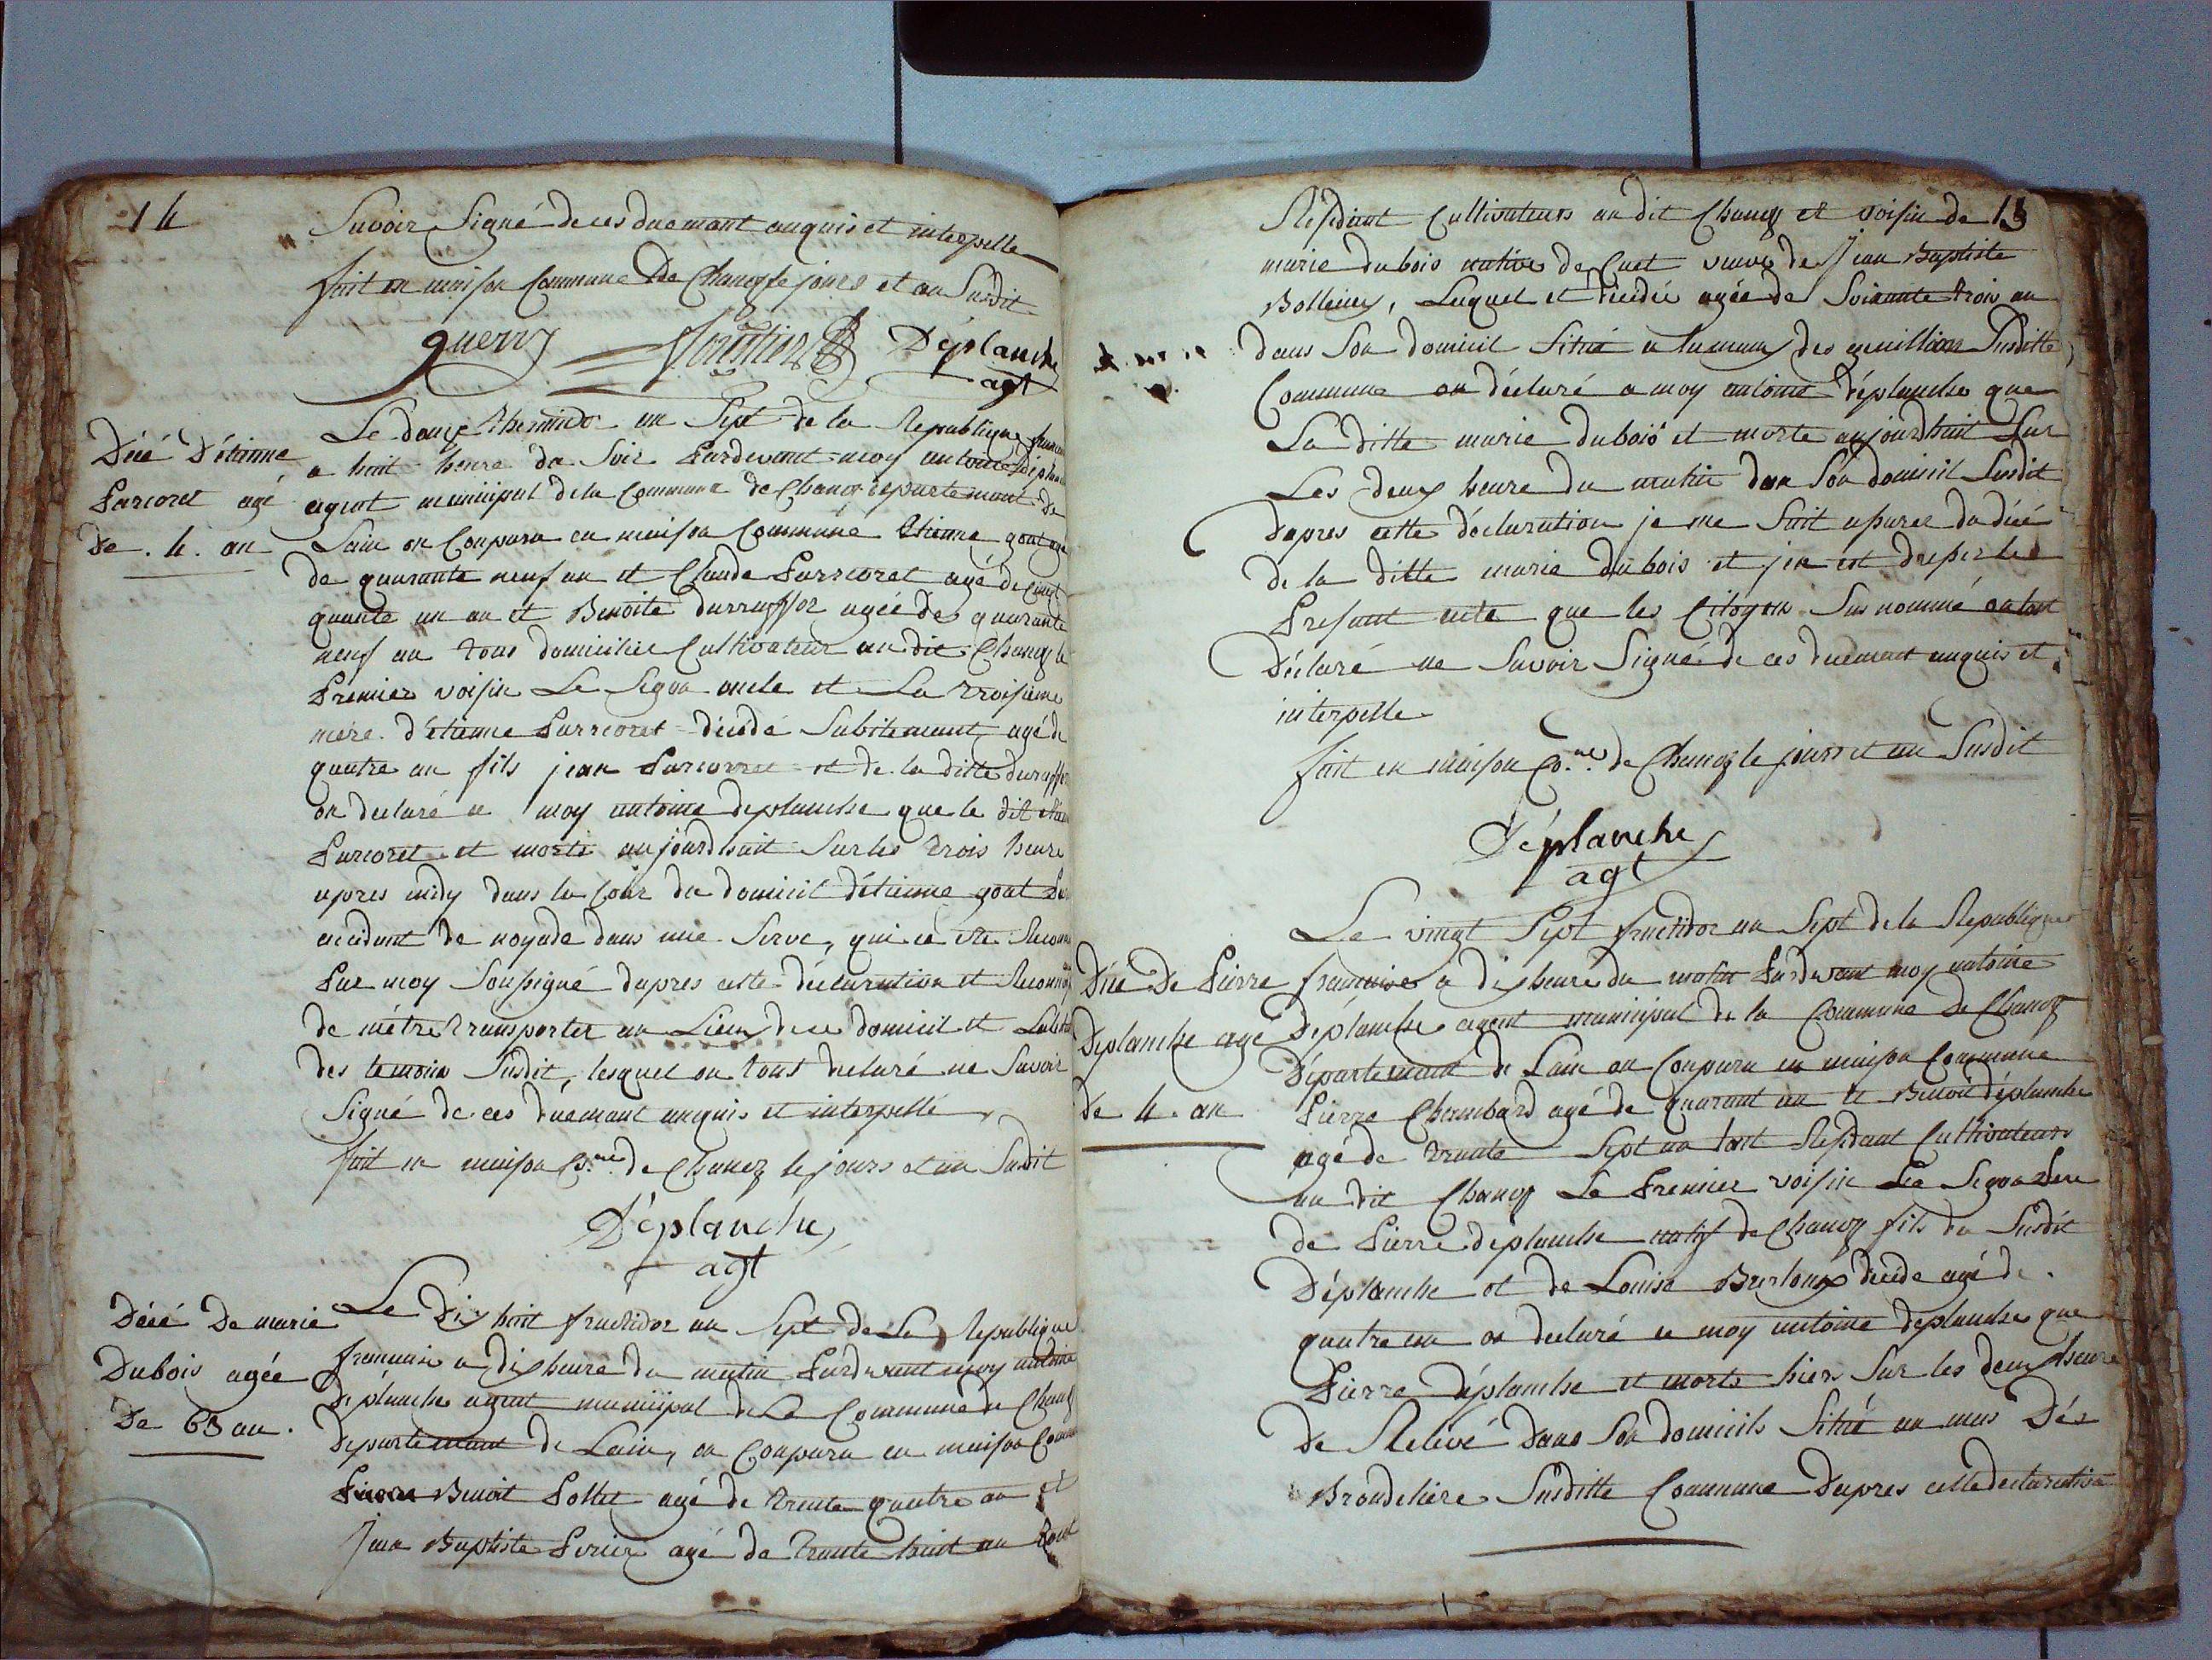 14
Savoir Signé de ces duemant anquis et interpelle
fait en maison Commune De Chanoz le jours et an Susdit
guerry Déplanche
agt
Décé D'étienne
Parcoret agé
De . 4 . an
Le douze thermido an Sept de la Republique
a huit heure du Soir Pardevant moy antoine
agent municipal de la Commune de Chanoz departemant de
Lain on Conparu en maison Commune Etienne gout
de quarante neuf an et Claude Parscoret agé de cinq
quante un an et Benoite durraffor agée de quarante
neuf an tous domicilie Cultivateur au dit Chanoz le
Premier voisin Le Segon oncle et La troisieme
mere d'étienne Parscoret décédé Subitemant agé de
quatre an fils jean Parcorret et de la ditte
on declaré a moy antoine deplanche que le dit
Parcoret et morte aujourdhuit Sur les trois heure
apres midy dans la Cour du domicil d'étienne gout
accidant de noyade dans une Serve, qui a ete
Par moy Sousigné dapres cette déclaration et
de métre transporter au Lieux de ce domicil et
des temoin Susdit, lesquel on tous declaré ne Savoir
Signé de ces duemant anquis et interpellé
fait en maison Co.me de Chanoz le jours et an Susdit
Déplanche
agt
Décé De marie
Dubois agée
De 63 an .
Le Dix huit fructidor an Sept de La Republique
francaise a dix heure du matin Pardevant moy antoine
Déplanche agent municipal de La Commune de Chanoz
Departemant de Lain, on Conparu en maison
Benoit Pollet agé de trente quatre an et
Jean Baptiste Perier agé de trante huit an tout
Residant Cultivateurs au dit Chanoz et voisin de 15
marie dubois native de Cuet veuve de Jean Baptiste
, Laquel et décédée agée de Soixante trois an
dans Son domicil Situé Susditte
Commune on déclaré a moy antoine déplanche que
La ditte marie dubois et morte aujourdhuit Sur
Les deux heure du matin dan Son domicil Susdit
dapres cette déclaration je me Suit asurer du décé
de la ditte marie dubois et jen est dresser le
Presant acte que les Citoyen Susnommé on tout
Déclaré ne Savoir Signé de ces duemant anquis et
interpelle
fait en maison Co.ne de Chanoz le jours et an Susdit
Déplanche
agt
Décé De Pierre
Deplanche agé
De 4 . an
Le vingt Sept fructidor an Sept de la Republique
francaise a dix heure du matin Pardevant moy antoine
Déplanche agent municipal de la Commune De Chanoz
Département de Lain on Conparu en maison Commune
Pierre Chambard agé de quarant an et Benoit déplanche
agé de trante Sept an tout Residant Cultivateurs
au dit Chanoz Le Premier voisin Le Segon Pere
de Pierre deplanche natif de Chanoz fils du Susdit
Déplanche et de Louise décédé agé de
quatre an on declaré a moy antoine deplanche que
Pierre Déplanche et morts hier Sur les deux heure
de Relevé dans Son domicils Situé au mas Dés
Brondeliere Susditte Commune Dapres cette declaration